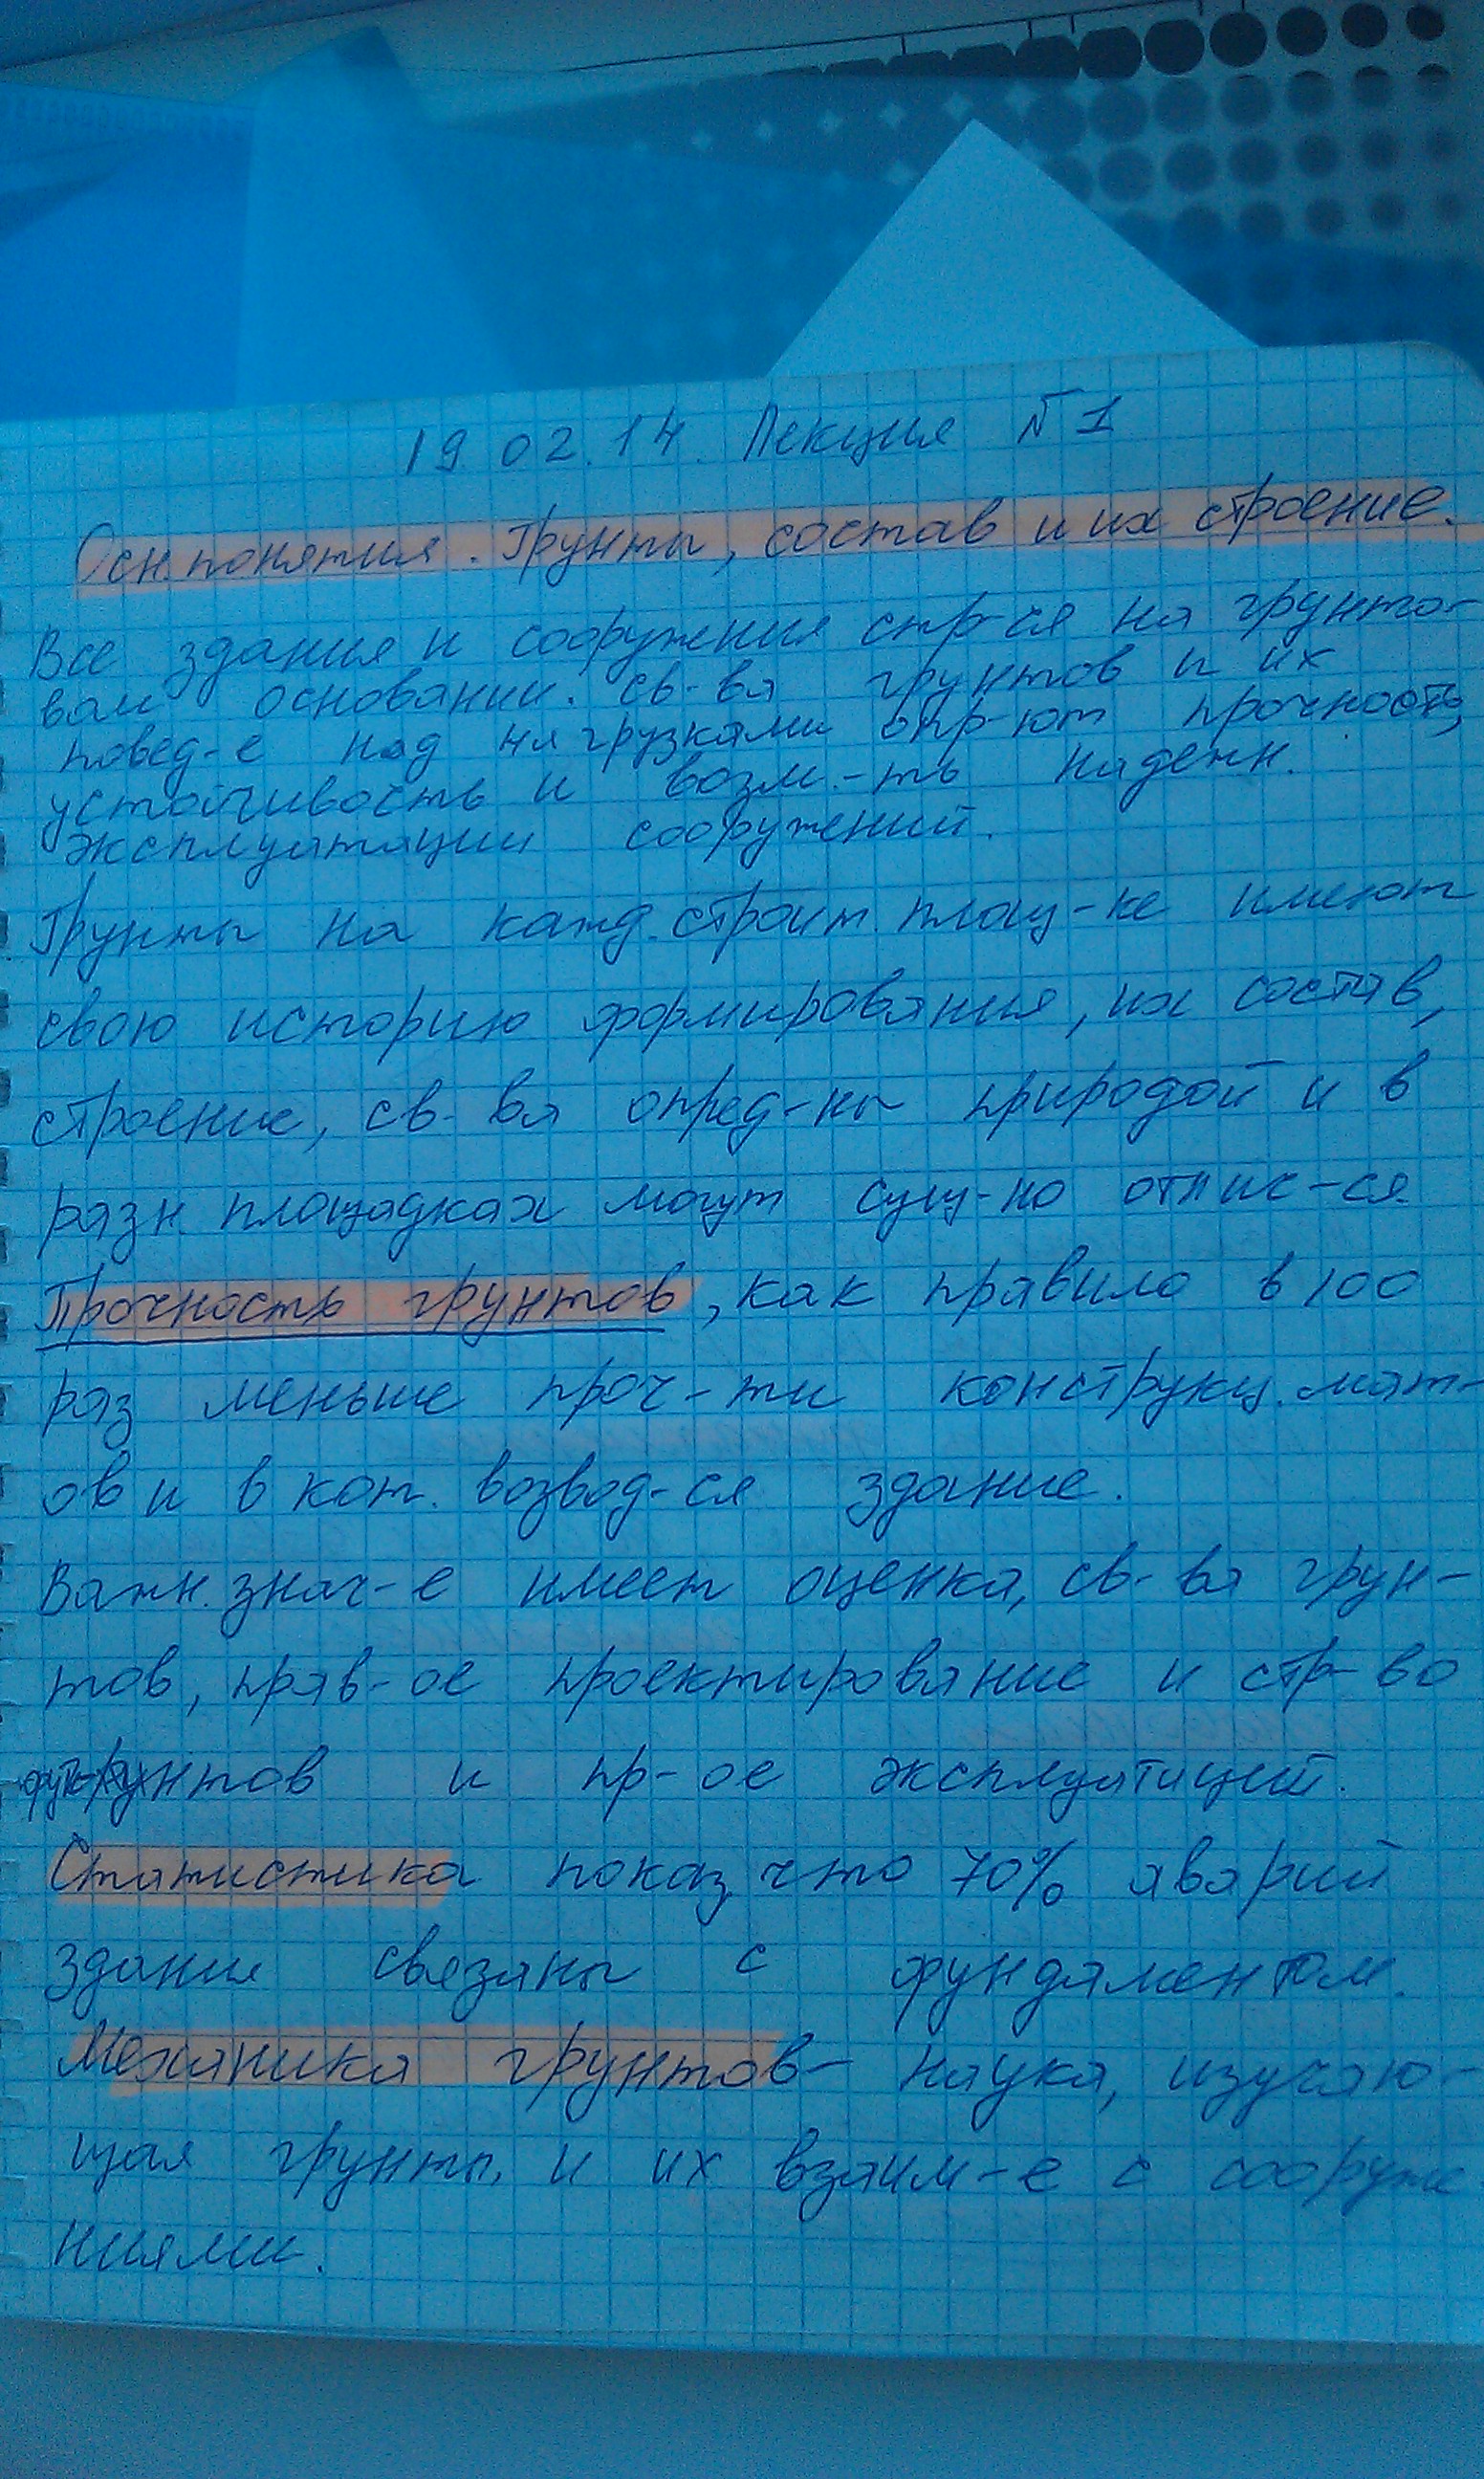 19.02.14. Лекция №1
Осн. понятия. Грунты, состав и их строение.
Все здания и сооружения стр-ся на грунто-
вом основании. св-ва грунтов и их
повед-е над нагрузками опр-ют прочность,
устойчивость и возм.-ть надежн.
эксплуатации сооружений.
Грунты на кажд. строит. площ-ке имеют
свою историю формирования, их состав,
строение, св-ва опред-ны природой и в
разн. площадках могут сущ-но отлич-ся
Прочность грунтов, как правило в 100
раз меньше проч-ти конструкц. мат-
ов и в кот. возвод-ся здание.
Важн. знач-е имеет оценка, св-ва грун-
тов, прав-ое проектирование и стр-во
грунтов и пр-ое эксплуатиций.
Статистика показ, что 70% аварий
здания связаны с фундаментом.
Механика грунтов- наука, изучаю-
щая грунты, и их взаим-е с сооруже
ниями.